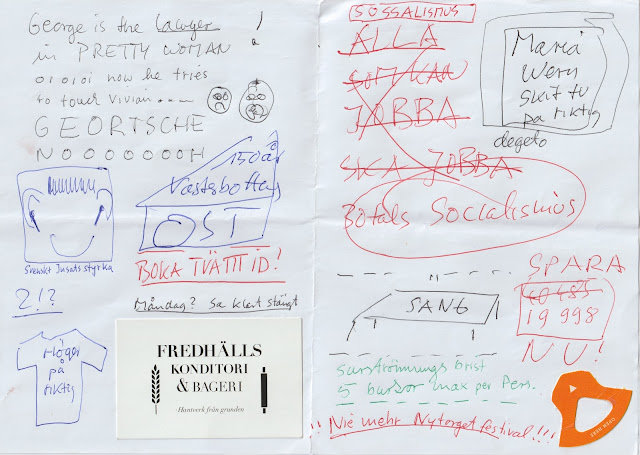 George is the lawyer !
in PRETTY WOMAN
oioioi now he tries
to touch Vivian....
GEORTSCHE
NOOOOOOOH
150 år
Västerbotten
OST
Svenskt Insats styrka
BOKA TVÄTTTID!
2!?
Måndag? Så klart stängt
Höger
på
riktig
FREDHÄLLS
KONDITORI
& BAGERI
Hantverk från grunden
SOSSALISMUS
ALLA
SOM KAN
JOBBA
SKA JOBBA
Bofals Socialismus
Maria
Wern
Skit TV
på riktig
degeto
SANG
SPARA
40 485
19 998
NU!
surströmmings brist
5 burkar max per Pers.
!! Nie mehr Nytorget festival!!!